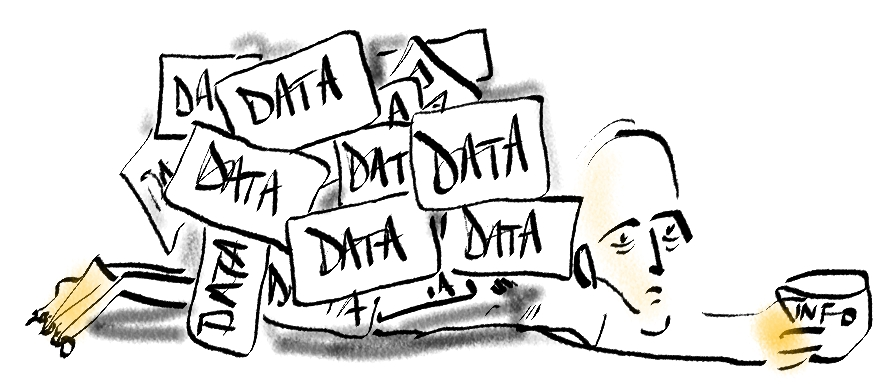 DA
DATA
A
DATA
DAT
DATA
DATA
DATA
DATA
D
INFO